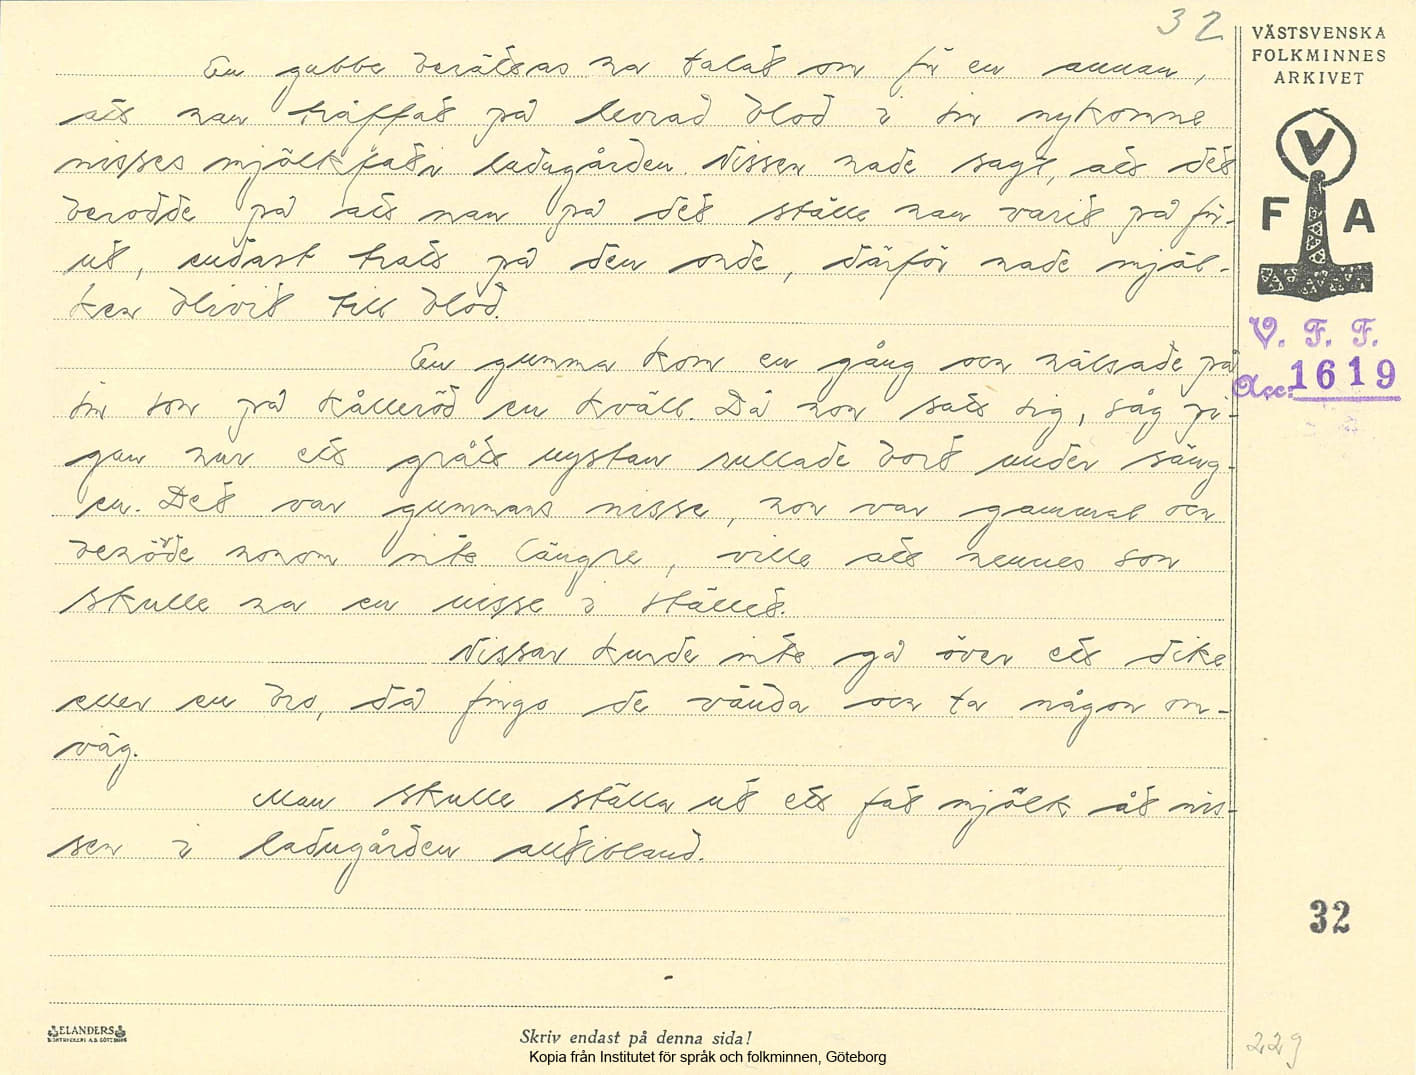 32
VÄSTSVENSKA
FOLKMINNES
ARKIVET
En gubbe berättas ha talat om för en annan,
att han träffat på levrad blod i sin nykomne
nisses mjölkfat i ladugården. Nissen hade sagt, att det
berodde på att man på det ställe han varit på för-
ut, endast trott på den onde, därför hade mjöl-
ken blivit till blod.
En gumma kom en gång och hälsade på
sin son på Kålleröd en kväll. Då hon satt sig, såg pi-
gan hur ett grått nystan rullade bort under säng-
en. Det var gummans nisse, hon var gammal och
behövde honom inte längre, ville att hennes son
skulle ha en nisse i stället.
Nissar kunde inte gå över ett dike
eller en bro, då fingo de vända och ta någon om-
väg.
Man skulle ställa ut ett fat mjölk åt nis-
sen i ladugården alltibland.
V
F A
V. F. F.
Acc. 1619
32
ELANDERS
BOKTRYCKERI A.B. GÖTEBORG
Skriv endast på denna sida!
Kopia från Institutet för språk och folkminnen, Göteborg
229